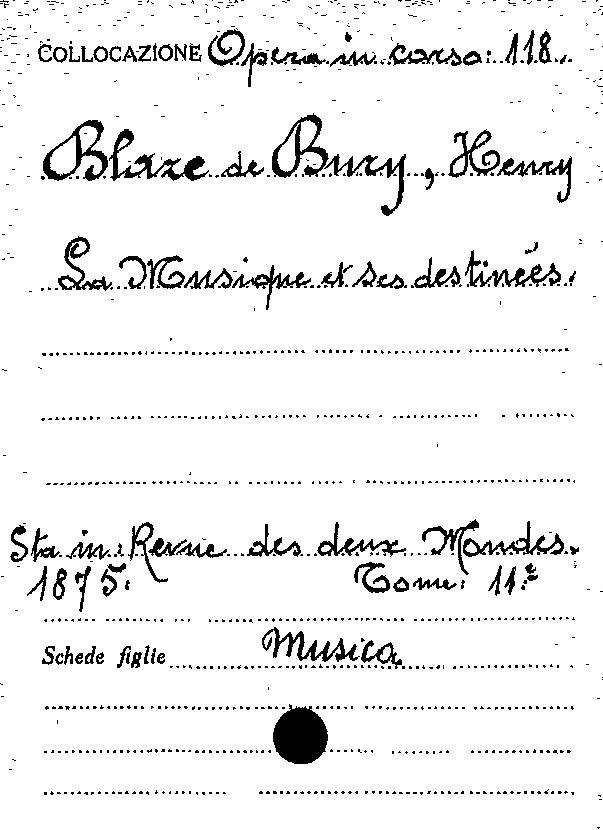 COLLOCAZIONE Opera in corso: 118.
Blaze de Bury, Henry
La Musique et ses destinées.
Sta in: Revue des deux Mondes.
1875. Tome: 11.e
Schede figlie Musica